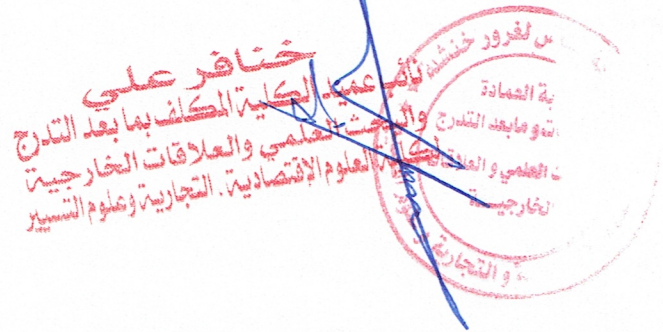 خنافر علي
نائب عميد الكلية المكلف بما بعد التدرج
والبحث العلمي والعلاقات الخارجية
لكلية العلوم الاقتصادية . التجارية وعلوم التسيير
س لغرور خنشلة
بة العمادة
مابعد التدرج
العلمي و العلاقات
لخارجيـة
و التجارية